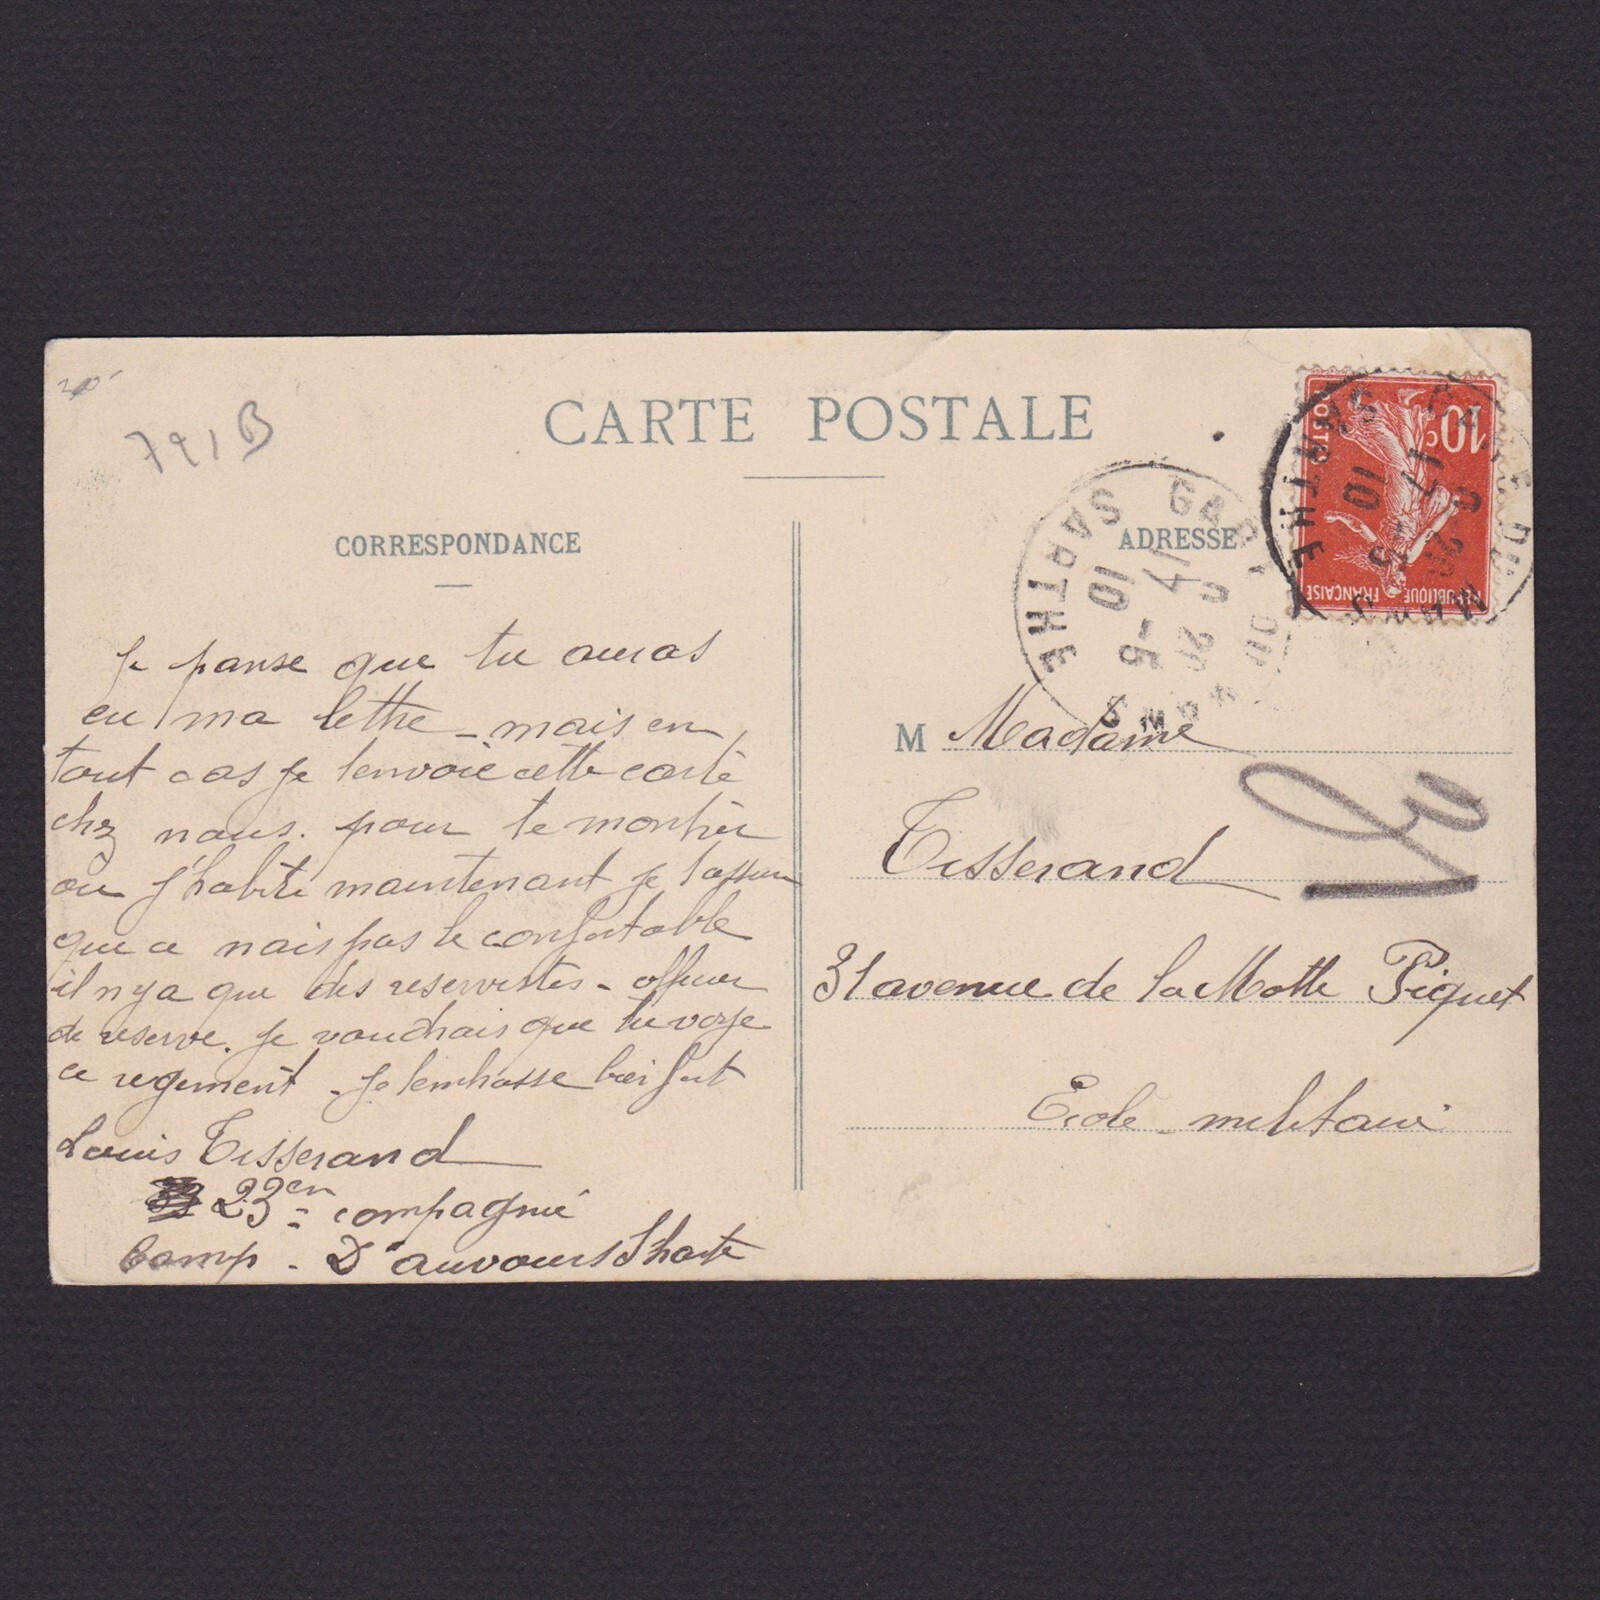 791B
CARTE POSTALE
CORRESPONDANCE
Je panse que tu auras
eu ma lettre - mais en
tout cas je tenvoie cette carte
chez nous. pour te montrer
ou j'habite maintenant je tassure
que ce nais pas le confortable
il n'ya que des reservistes - officier
de reserve. Je voudrais que tu voye
ce regement - Je tembrasse bien fort
Louis Tisserand
23en compagnie
Camp - D'auvours Sharte
ADRESSE
SARTHE
GARE DU MANS
10 - 5
SARTHE
10
10c
POSTES
REPUBLIQUE FRANCAISE
M Madame
Tisserand
31 avenue de la Motte Piquet
Ecole - militaire